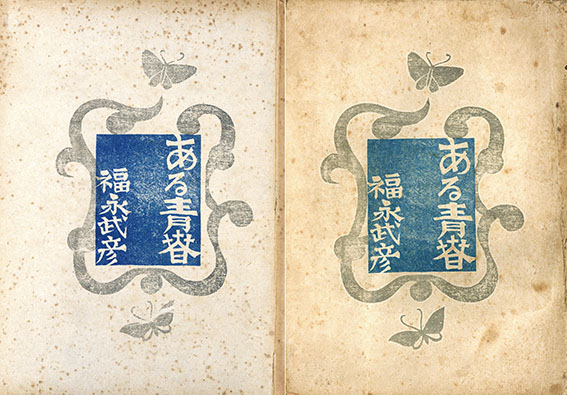 ある青春
福永武彦
ある青春
福永武彦